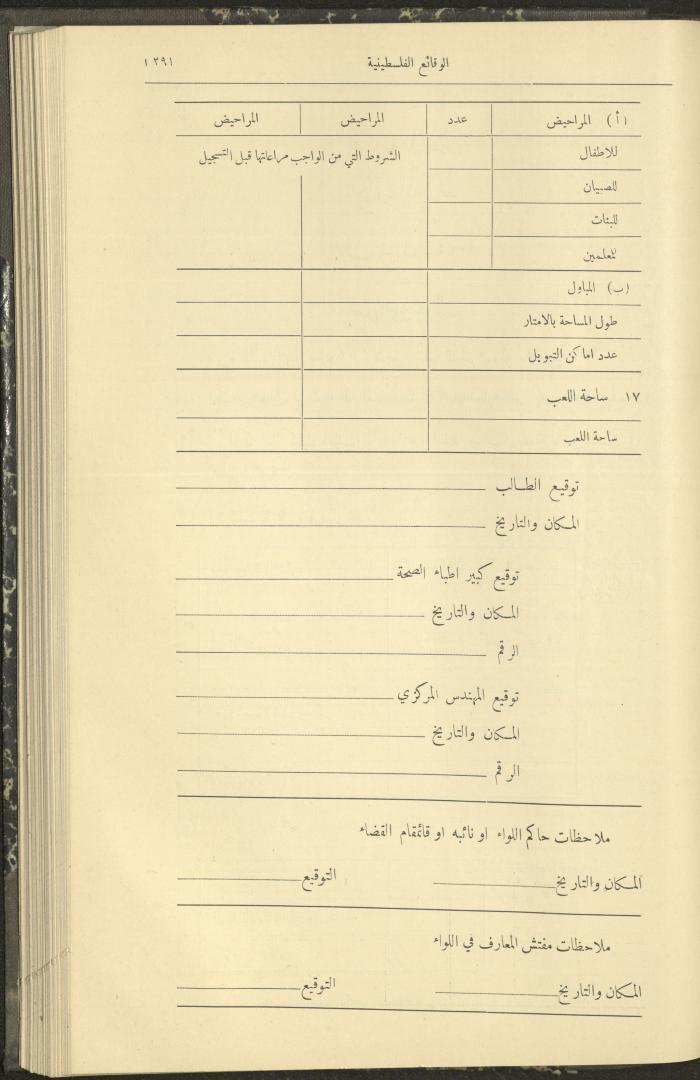 الوقائع الفلسطينية ١٢٩١
(أ) المراحيض عدد المراحيض المراحيض
للاطفال
الشروط التي من الواجب مراعاتها قبل التسجيل
للصبيان
للبنات
للمعلمين
(ب) المباول
طول المساحة بالامتار
عدد اماكن التبويل
١٧ ساحة اللعب
ساحة اللعب
توقيع الطالب
المكان والتاريخ
توقيع كبير اطباء الصحة
المكان والتاريخ
الرقم
توقيع المهندس المركزي
المكان والتاريخ
الرقم
ملاحظات حاكم اللواء او نائبه او قائمقام القضاء
المكان والتاريخ التوقيع
ملاحظات مفتش المعارف في اللواء
المكان والتاريخ التوقيع